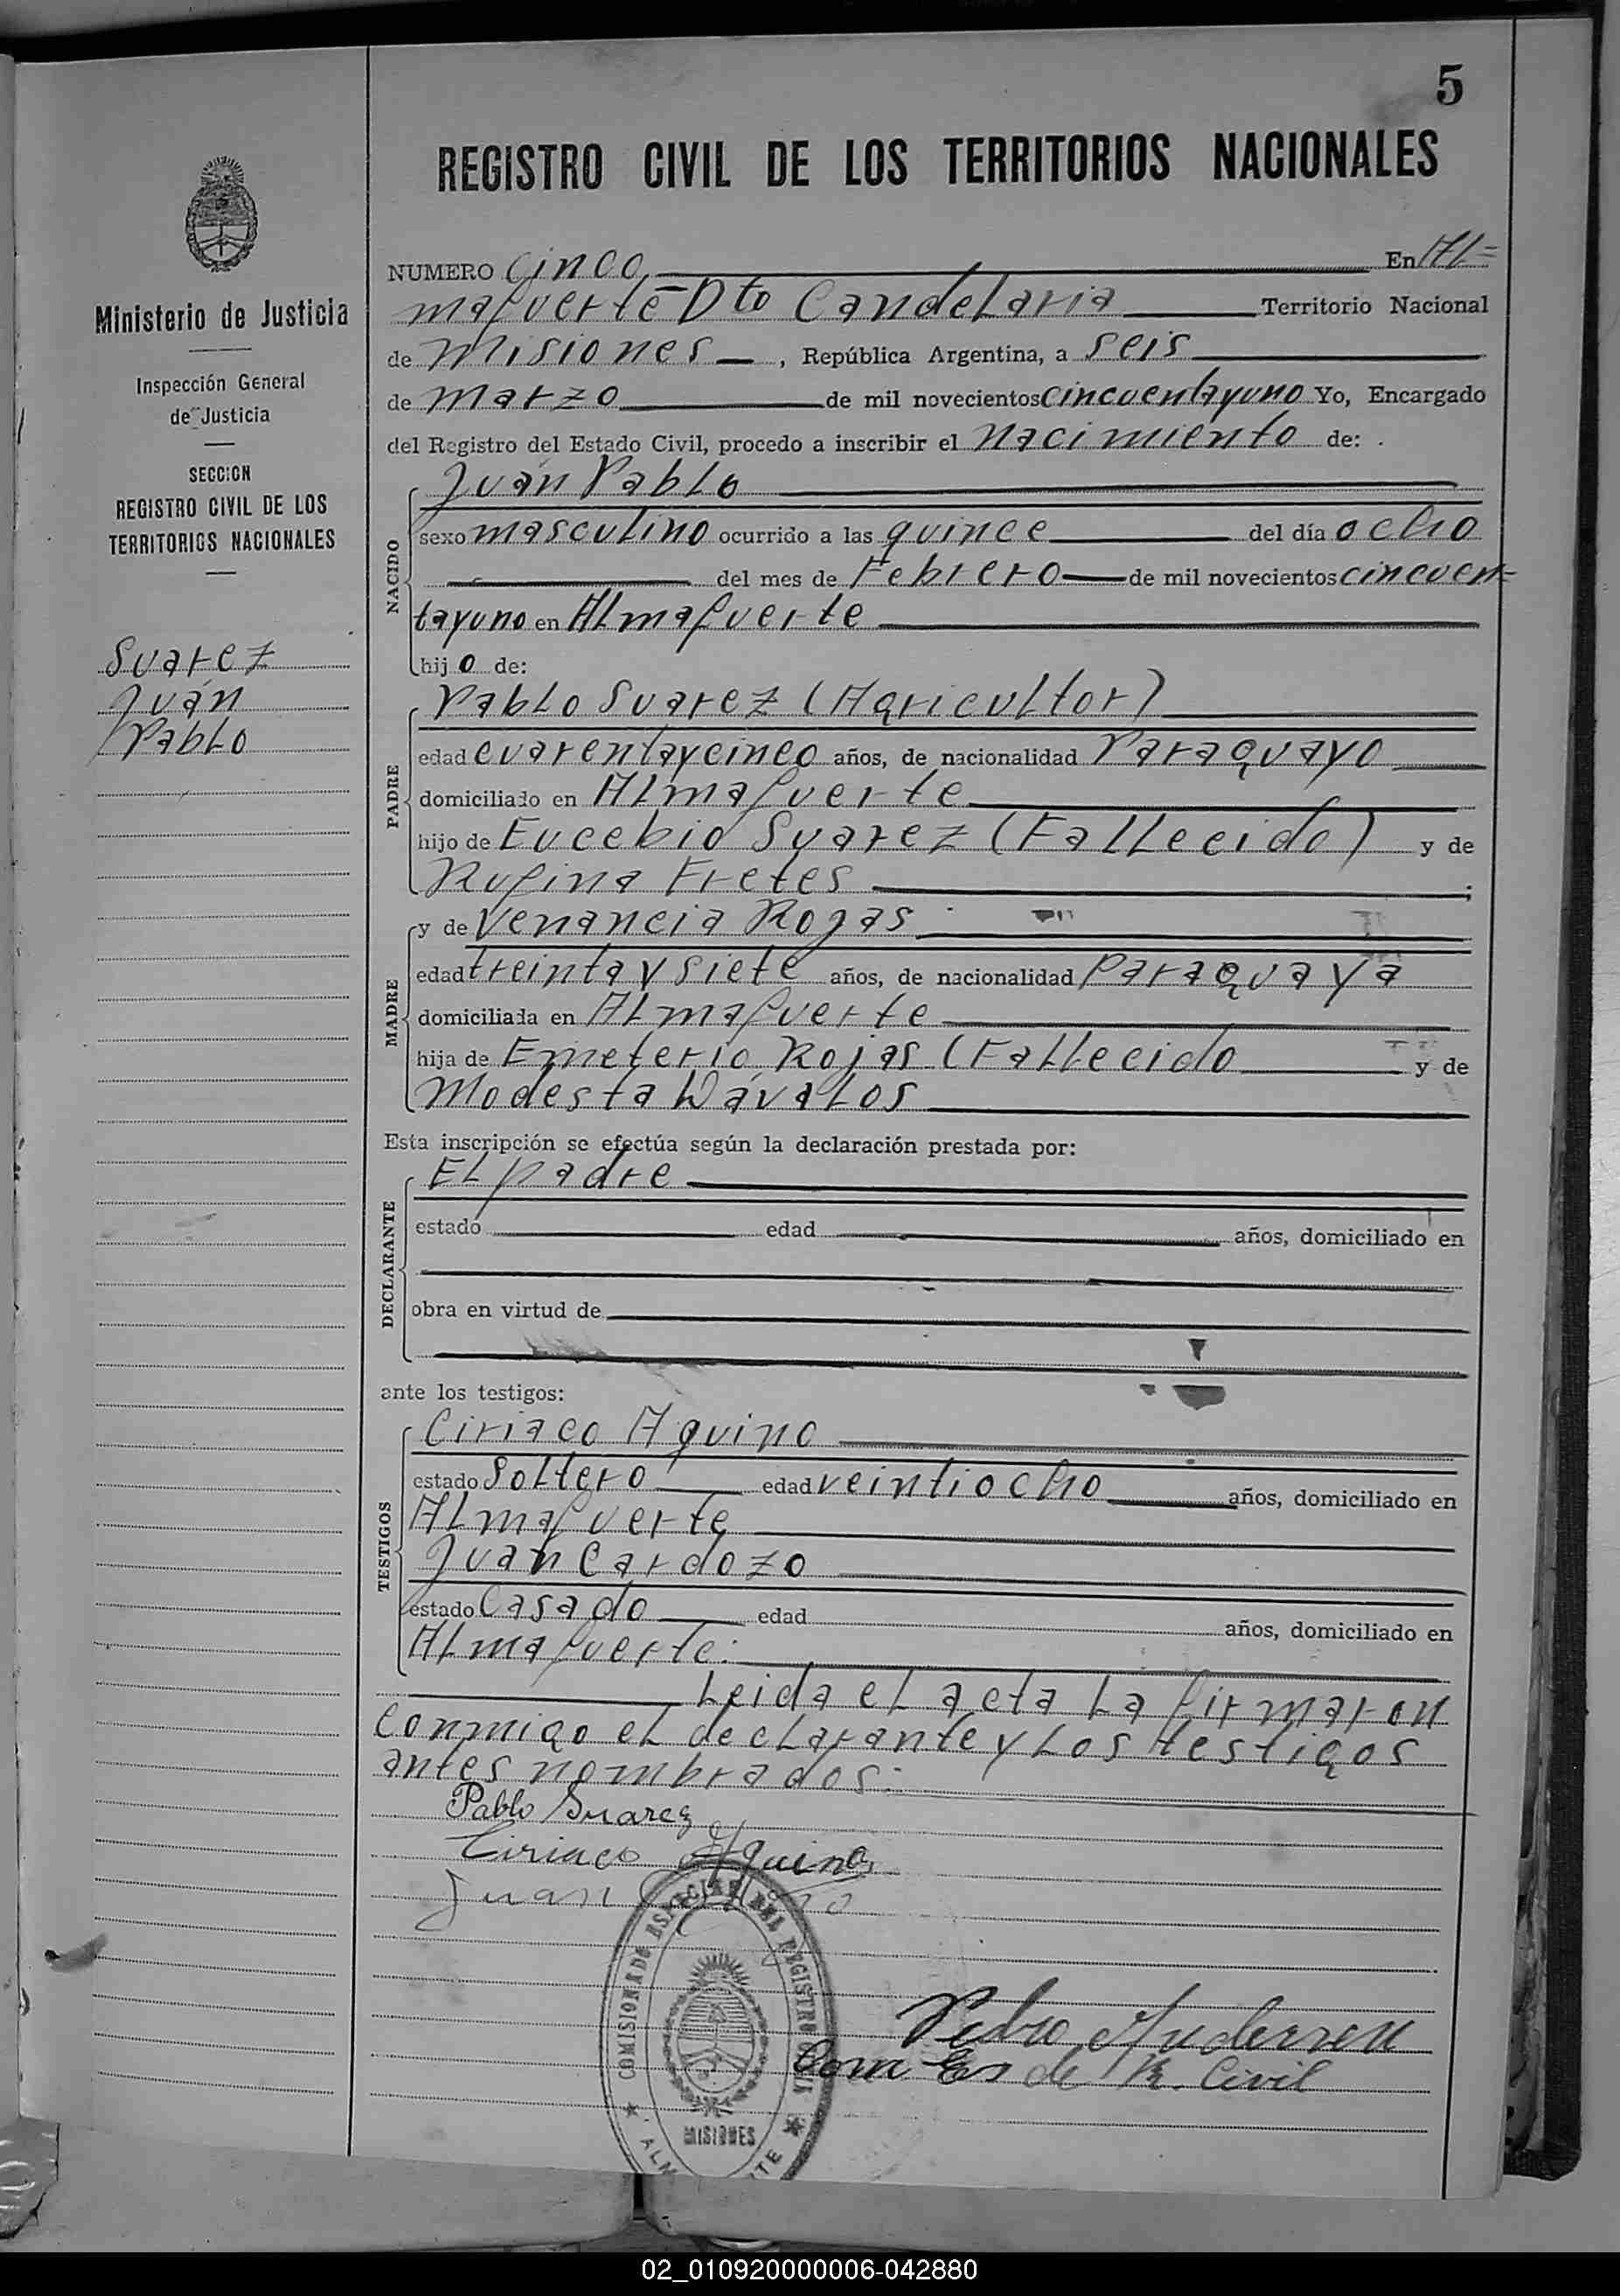 5
REGISTRO CIVIL DE LOS TERRITORIOS NACIONALES
Ministerio de Justicia
Inspección General
de Justicia
SECCION
REGISTRO CIVIL DE LOS
TERRITORIOS NACIONALES
Suarez
Juán
Pablo
NUMERO Cinco En Al=
mafuerte-Dto Candelaria Territorio Nacional
de Misiones , República Argentina, a seis
de marzo de mil novecientos cincuentayuno Yo, Encargado
del Registro del Estado Civil, procedo a inscribir el nacimiento de:
NACIDO
Juán Pablo
sexo masculino ocurrido a las quince del día ocho
del mes de Febrero de mil novecientos cincuen=
tayuno en Almafuerte
hijo de:
PADRE
Pablo Suarez (Agricultor)
edad cuarentaycinco años, de nacionalidad Paraguayo
domiciliado en Almafuerte
hijo de Eucebio Suarez (Fallecido) y de
Rufina Fretes ;
MADRE
y de Venancia Rojas
edad treinta y siete años, de nacionalidad paraguaya
domiciliada en Almafuerte
hija de Emeterio Rojas (Fallecido y de
Modesta Dávalos
Esta inscripción se efectúa según la declaración prestada por:
DECLARANTE
El padre
estado edad años, domiciliado en
obra en virtud de
ante los testigos:
TESTIGOS
Ciriaco Aquino
estado Soltero edad veintiocho años, domiciliado en
Almafuerte
Juan Cardozo
estado Casado edad años, domiciliado en
Almafuerte.
Leida el acta la firmaron
conmigo el declarante y los testigos
antes nombrados.
Pablo Suarez
Ciriaco Aquino
Juan
COMISIONADO ESPECIAL DEL REGISTRO CIVIL
MISIONES
Pedro
Com Es de R. Civil
02_010920000006-042880